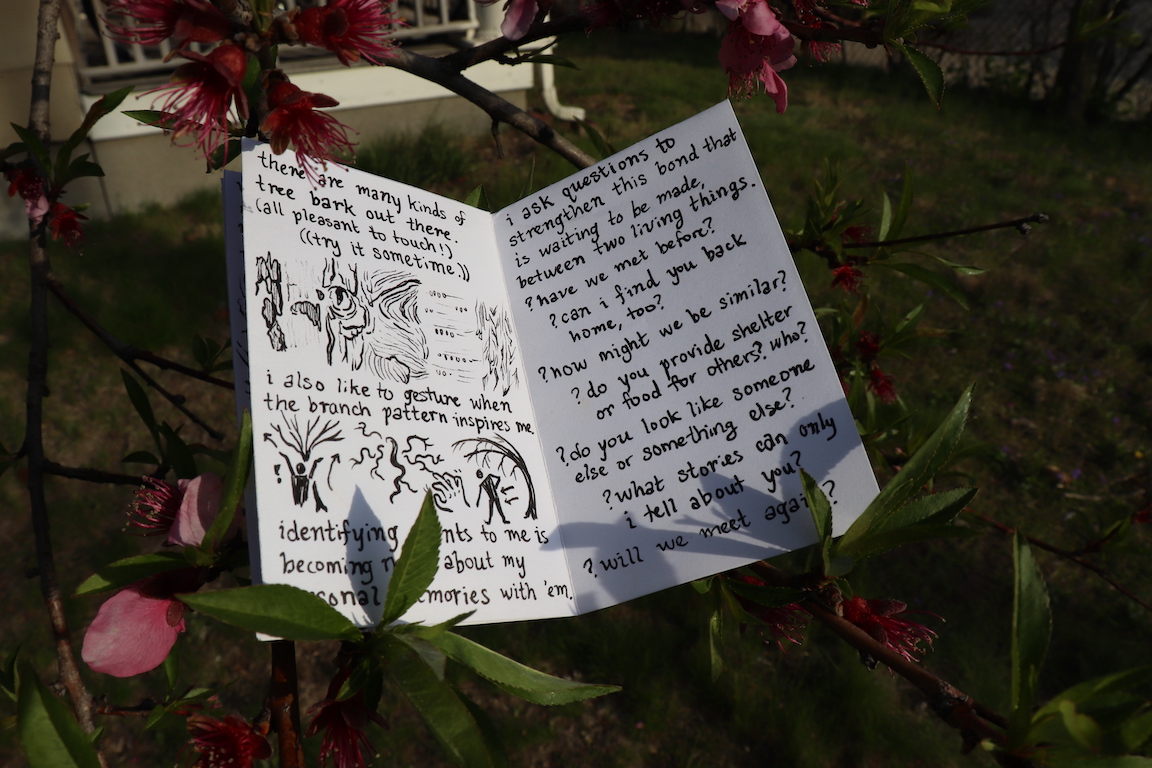 there are many kinds of
tree bark out there.
(all pleasant to touch!)
((try it sometime.))
i also like to gesture when
the branch pattern inspires me.
identifying nts to me is
becoming about my
sonal emories with 'em.
i ask questions to
strengthen this bond that
is waiting to be made,
between two living things.
?have we met before?
?can i find you back
home, too?
?how might we be similar?
?do you provide shelter
or food for others? who?
?do you look like someone
else or something else?
?what stories can only
i tell about you?
?will we meet again?